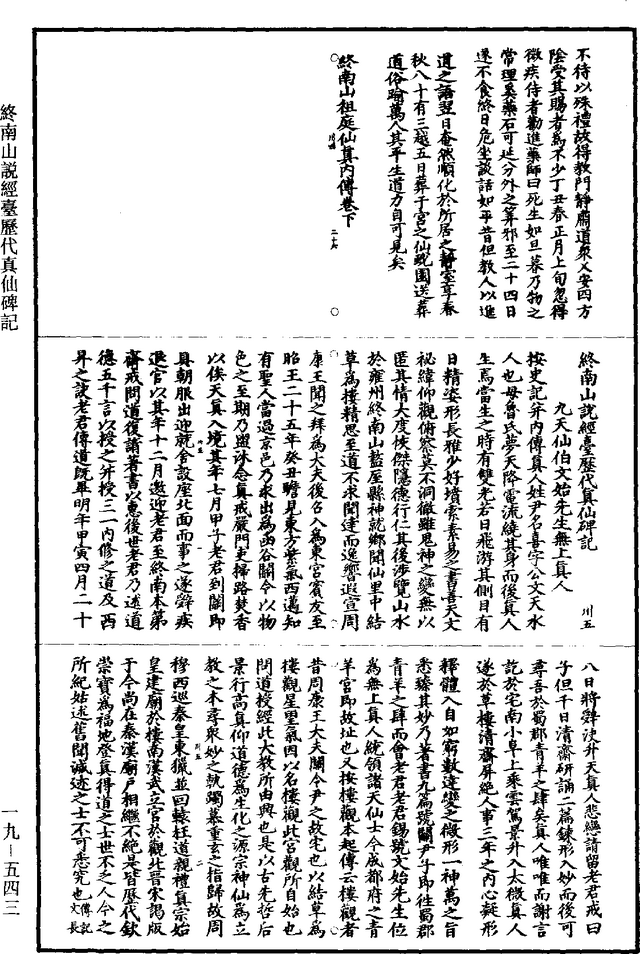 不待以殊禮故得教門靜肅道衆乂安四方
陰受其賜者為不少丁丑春正月上旬忽得
微疾侍者勸進藥師曰死生如旦暮乃物之
常理奚藥石可延分外之算邪至二十四日
遂不食終日危坐談話如平昔但教人以進
道之語翌日奄然順化於所居之靜室享春
秋八十有三越五日葬于宮之仙蛻園送葬
道俗踰萬人其平生道力自可見矣
終南山祖庭仙真內傳卷下
終南山說經臺歷代真仙碑記
川五
九天仙伯文始先生無上真人
按史記并內傳真人姓尹名喜字公文天水
人也母魯氏夢天降電流繞其身而後真人
生焉當生之時有雙光若日飛游其側目有
日精姿形長雅少好墳索素易之書善天文
祕緯仰觀俯察莫不洞徹雖鬼神之變無以
匿其情大度恢傑隱德行仁其後涉覽山水
於雍州終南山盩厔縣神就鄉聞仙里中結
草為樓精思至道不求聞達而逸響遐宣周
康王聞之拜為大夫後召入為東宮賓友至
昭王二十五年癸丑瞻見東方紫氣西邁知
有聖人當過京邑乃求出為函谷關令以物
色之至期乃盥沐念真戒嚴門吏掃路焚香
以俟天真入境其年七月甲子老君到關即
具朝服出迎就舍設座北面而事之遂辭疾
退官以其年十二月邀迎老君至終南本第
齋戒問道復請著書以惠後世老君乃述道
德五千言以授之并授三一內修之道及西
昇之訣老君傳道既畢明年甲寅四月二十
八日將辭決升天真人悲戀請留老君戒曰
子但千日清齋研誦二篇鍊形入妙而後可
尋吾於蜀郡青羊之肆矣真人唯唯而謝言
訖於宅南小阜上乘雲駕景升入太微真人
遂於草樓清齋屏絕人事三年之內心凝形
釋體入自如窮數達變之微形一神萬之旨
悉臻其妙乃著書九篇號關尹子即往蜀郡
青羊之肆而會老君老君錫號文始先生位
為無上真人統領諸天仙士今成都府之青
羊宮即故址也又按樓觀本起傳云樓觀者
昔周康王大夫關令尹之故宅也以結草為
樓觀星望氣因以名樓觀此宮觀所自始也
問道授經此大教所由興也是以古先哲后
景行高真仰道德為生化之源宗神仙為立
教之本尋衆妙之執躅慕重玄之指歸故周
穆西巡秦皇東獵並回轅枉道親禮真宗始
皇建廟於樓南漢武立宮於觀北晉宋謁版
于今尚在秦漢廟戶相繼不絕是皆歷代欽
崇寶為福地登真得道之士世不乏人今之
所紀姑述舊聞滅迹之士不可悉究也
傳記文長
終南山說經臺歷代真仙碑記
一九—五四三